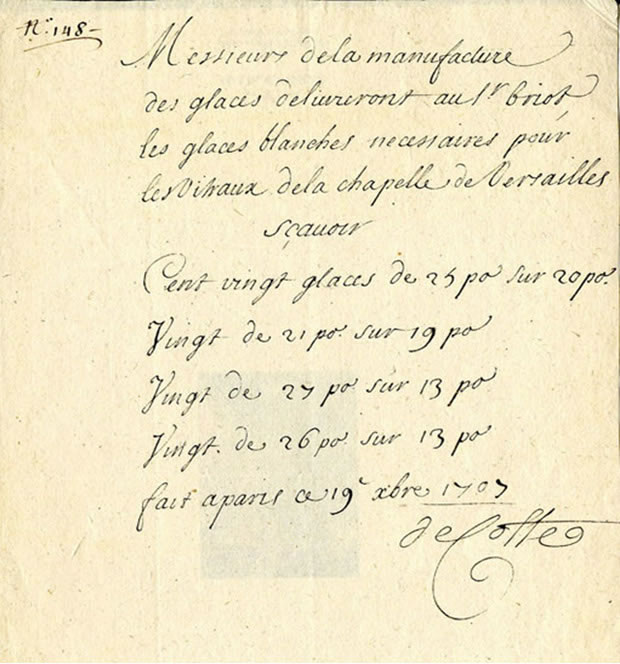 N.º 148
Messieurs dela manufacture
des glaces delivreront au Sr briot
les glaces blanches necessaires pour
les Vitraux dela chapelle de Versailles
sçavoir
Cent vingt glaces de 25 po sur 20 po.
Vingt de 21 po. sur 19 po
Vingt de 27 po sur 13 po
Vingt. de 26 po sur 13 po
fait a paris ce 19e xbre 1707
de Cotte